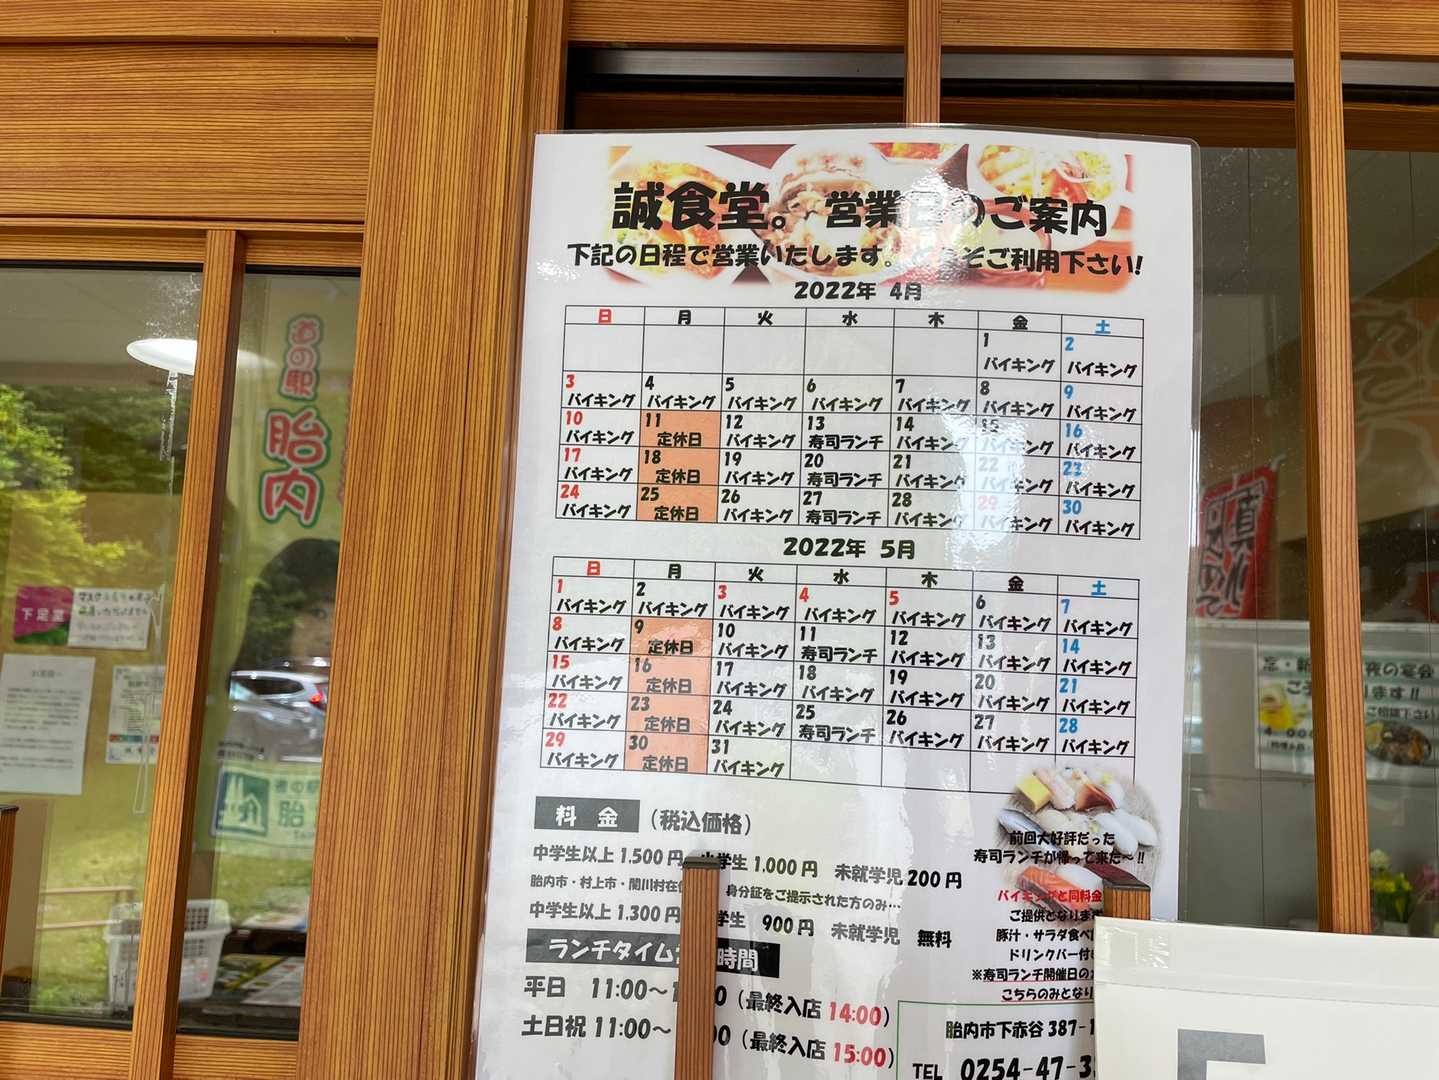 誠食堂。 営業日のご案内
下記の日程で営業いたします。 ぞご利用下さい!
2022年 4月
日 月 火 水 木 金 土
1 2
バイキング バイキング
3 4 5 6 7 8 9
バイキング バイキング バイキング バイキング バイキング バイキング バイキング
10 11 12 13 14 15 16
バイキング 定休日 バイキング 寿司ランチ バイキング バイキング バイキング
17 18 19 20 21 22 23
バイキング 定休日 バイキング 寿司ランチ バイキング バイキング バイキング
24 25 26 27 28 29 30
バイキング 定休日 バイキング 寿司ランチ バイキング バイキング バイキング
2022年 5月
日 月 火 水 木 金 土
1 2 3 4 5 6 7
バイキング バイキング バイキング バイキング バイキング バイキング バイキング
8 9 10 11 12 13 14
バイキング 定休日 バイキング 寿司ランチ バイキング バイキング バイキング
15 16 17 18 19 20 21
バイキング 定休日 バイキング バイキング バイキング バイキング バイキング
22 23 24 25 26 27 28
バイキング 定休日 バイキング 寿司ランチ バイキング バイキング バイキング
29 30 31
バイキング 定休日 バイキング
料 金 (税込価格)
中学生以上 1.500円 小学生 1.000円 未就学児 200円
胎内市・村上市・関川村在住 身分証をご提示された方のみ…
中学生以上 1.300円 学生 900円 未就学児 無料
ランチタイム 時間
平日 11:00～ 0 (最終入店 14:00)
土日祝 11:00～ 00 (最終入店 15:00)
前回大好評だった
寿司ランチが帰って来た～!!
バイキングと同料金
ご提供となります
豚汁・サラダ食べ
ドリンクバー付
※寿司ランチ開催日の
こちらのみとなり
胎内市下赤谷 387-1
TEL 0254-47-3
道の駅
胎内
下足室
ご相談下さい